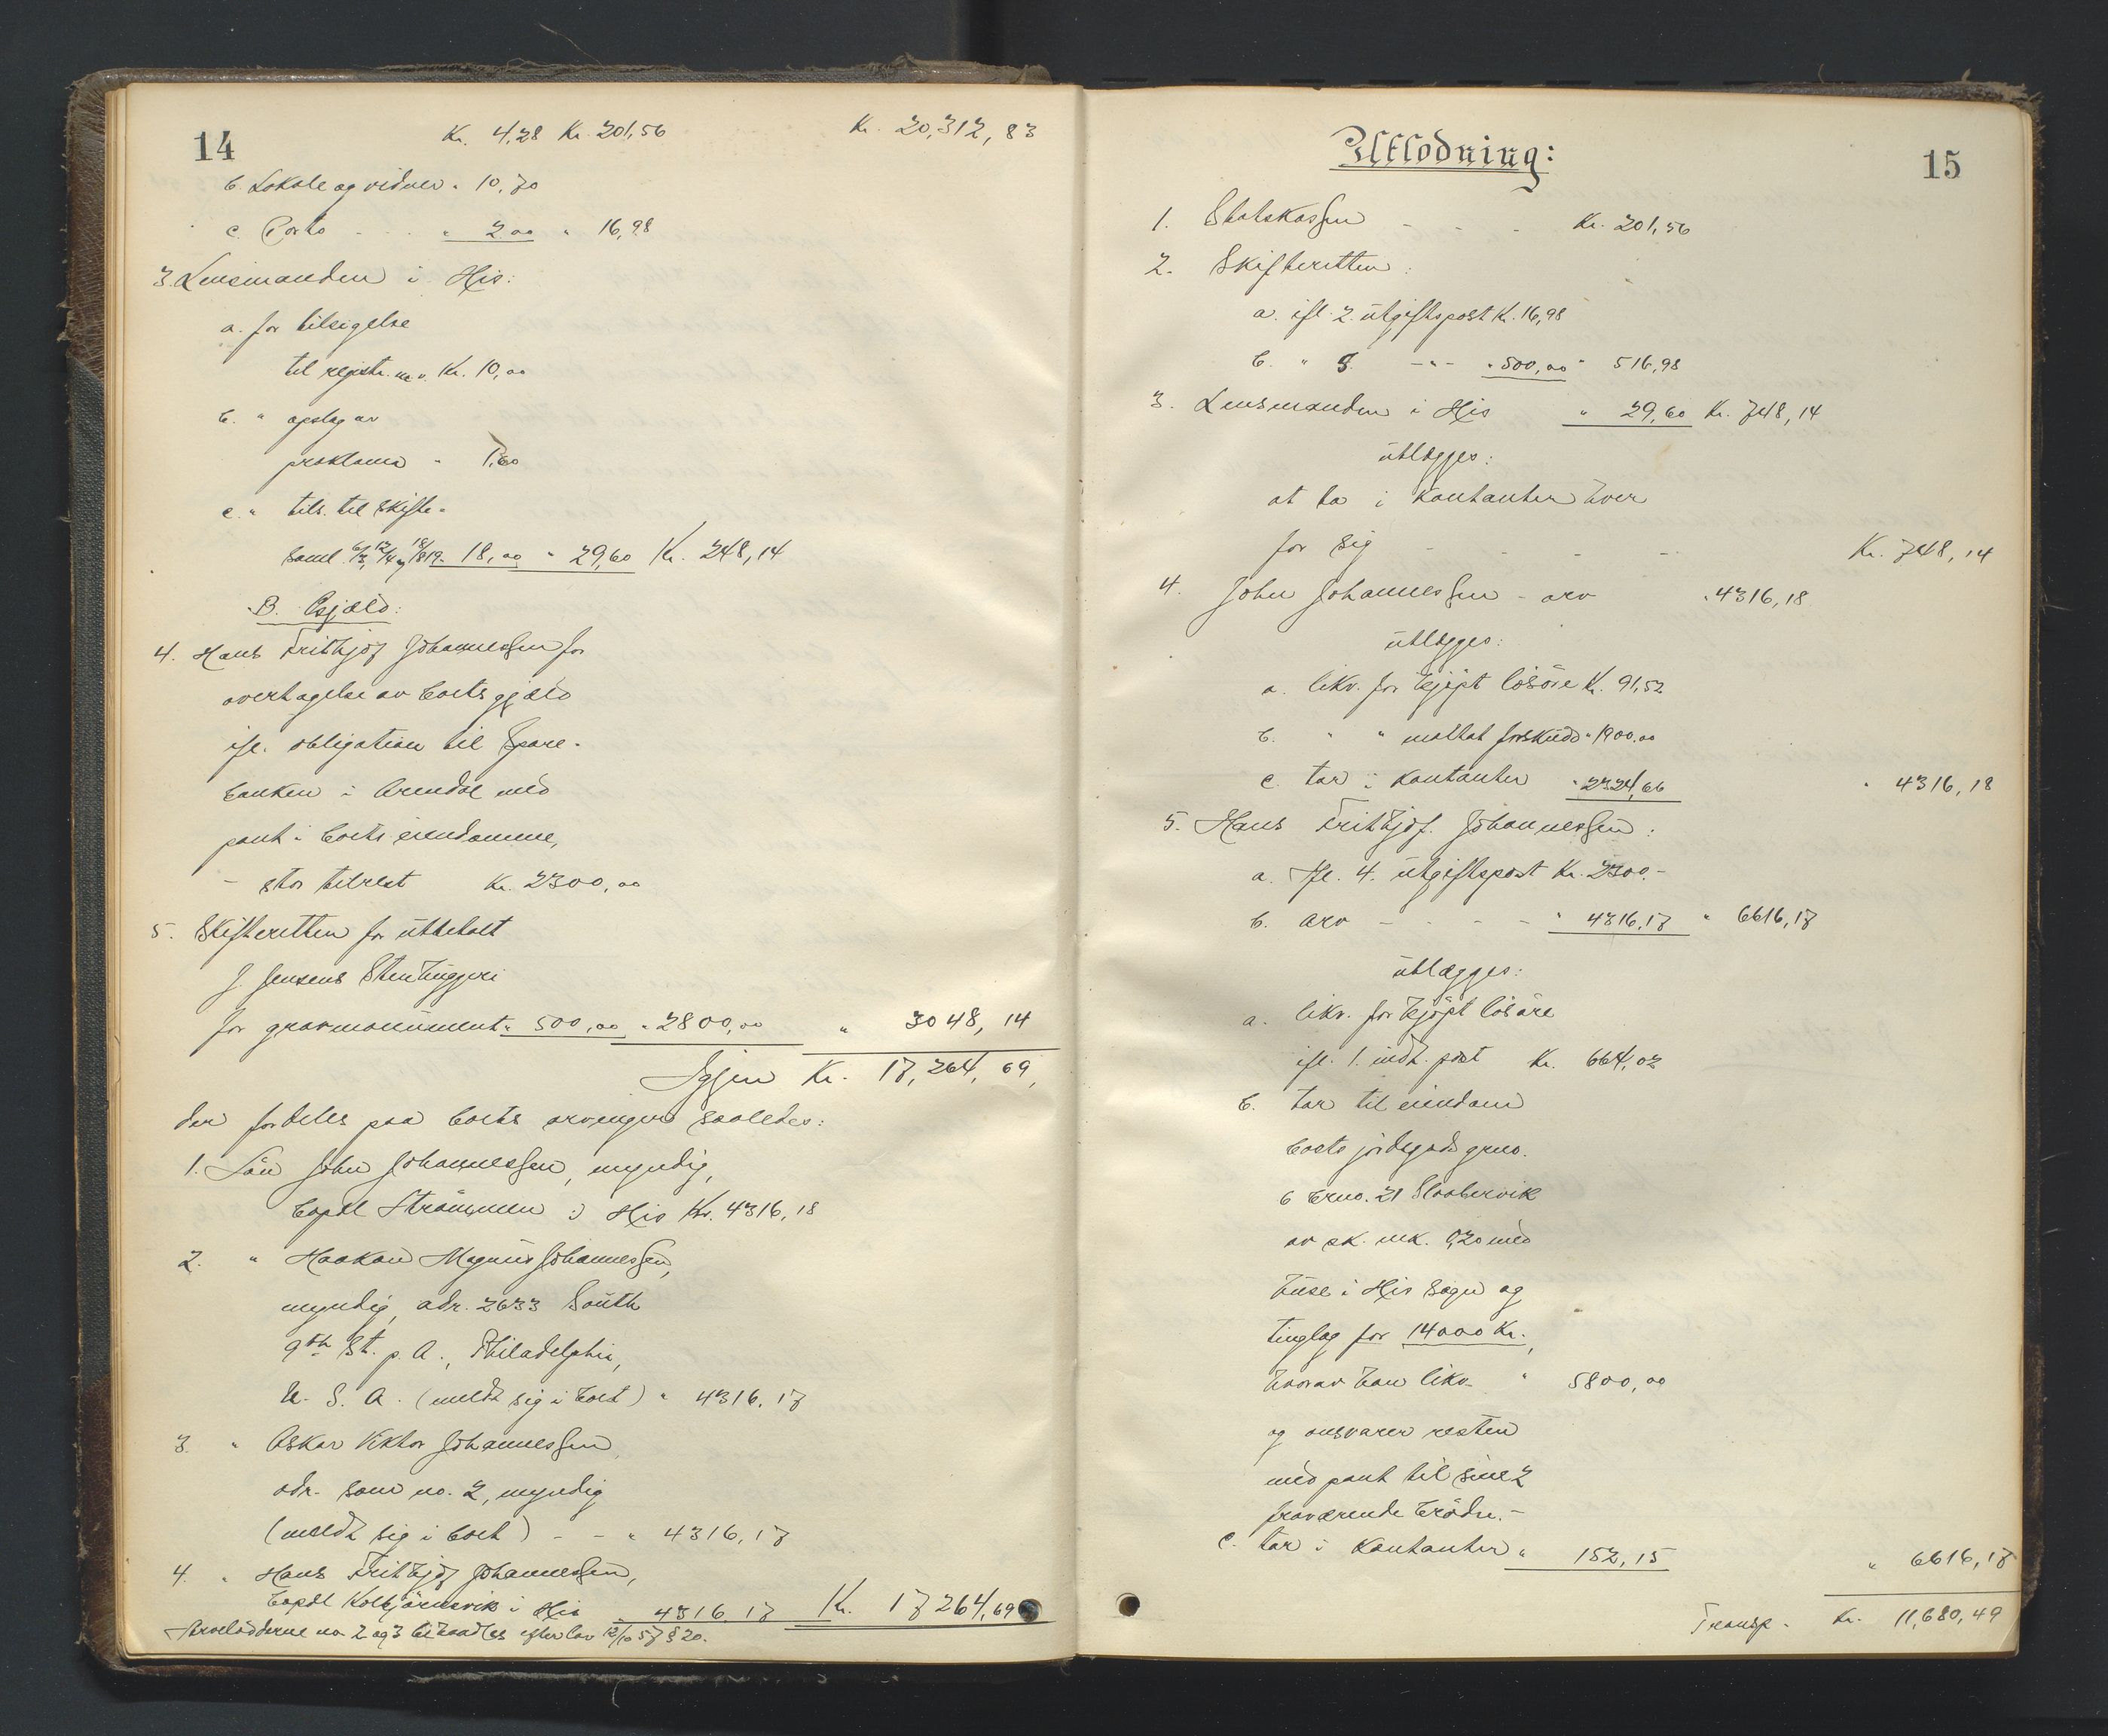 14
Kr. 4,28 Kr. 201,56 Kr. 20,312,83
b. Lokale og vidner " 10,70
c. Porto " 2.00 " 16,98
3. Lensmanden i His:
a. for tilsigelse
til registr. m. v. Kr. 10,00
b. " opslag av
proklama " 1,60
c. " tils. til skifte-
saml. 6/3, 12/4 og 18/8 19 - 18,00 " 29,60 Kr. 248,14
B. Gjæld:
4. Hans Frithjof Johannessen for
overtagelse av boets gjæld
ifl. obligation til Spare-
banken i Arendal med
pant i boets eiendomme,
- stor tilrest Kr. 2300,00
5. Skifteretten for utbetalt
J. Jensens Stenhuggeri
for gravmonument " 500,00 " 2800,00 " 3048,14
Igjen Kr. 17,264,69,
der fordeles paa boets arvinger saaledes:
1. Søn John Johannessen, myndig,
bopæl Strømmen i His Kr. 4316,18
2. " Haakon Magnus Johannessen,
myndig, adr. 2633 South
9th St. p. A., Philadelphia,
U. S. A. (meldt sig i boet) " 4316,17
3. " Oskar Viktor Johannessen,
adr. som no. 2, myndig
(meldt sig i boet) - - " 4316,17
4. " Hans Frithjof Johannessen,
bopæl Kolbjørnsvik i His " 4316,17 Kr. 17264,69
Arvelodderne no. 2 og 3 behandles efter lov 12/10 57 § 20.
15
Utlodning:
1. Statskassen - - - Kr. 201,56
2. Skifteretten:
a. ifl. 2. utgiftspost Kr. 16,98
b. " 5. -"- " 500,00 " 516,98
3. Lensmanden i His " 29,60 Kr. 748,14
utlægges:
at ta i kontanter hver
for sig - - - - Kr. 748,14
4. John Johannessen - arv " 4316,18
utlægges:
a. likv. for kjøpt løsøre Kr. 91,52
b. " " mottat forskudd " 1900.00
c. tar i kontanter " 2324,66 " 4316,18
5. Hans Frithjof Johannessen:
a. Ifl. 4. utgiftspost Kr. 2300.-
b. arv - - - - " 4316,17 " 6616,17
utlægges:
a. likv. for kjøpt løsøre
ifl. 1. indt. post Kr. 664,02
b. tar til eiendom
boets jordegods grno.
6 brno. 21 Slaabervik
av sk. mk. 0,20 med
huse i His sogn og
tinglag for 14000 Kr.,
hvorav han likv. " 5800,00
og ansvarer resten
med pant til sine 2
fraværende brødre.-
c. tar i kontanter " 152,15 " 6616,17
Transp. Kr. 11,680,49